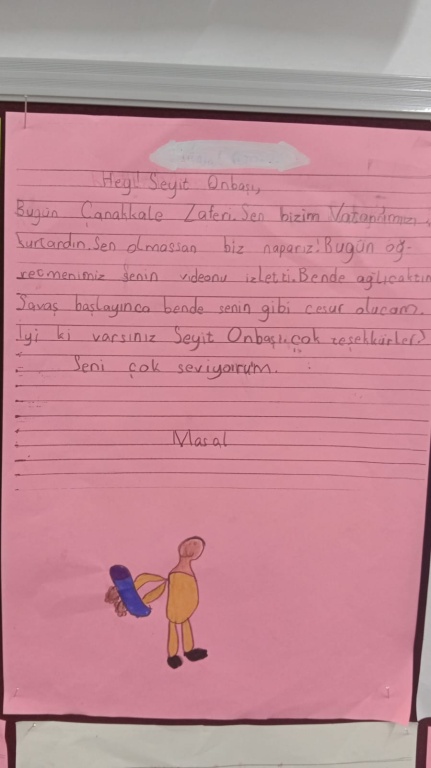 Hey!! Seyit Onbaşı,
Bugün Çanahkale Zaferi. Sen bizim Vatanımızı
kurtardın. Sen olmassan biz naparız! Bugün öğ-
retmenimiz senin videonu izletti. Bende ağlıcaktım
Savaş başlayınca bende senin gibi cesur olucam.
İyi ki varsınız Seyit Onbaşı çok teşehkürler?
Seni çok seviyorum.
Masal